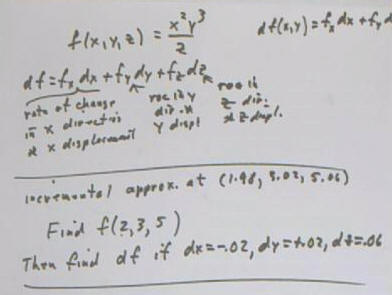 f(x,y,z) = x²y³/z
df(x,y) = fₓdx + f_y d
df = fₓdx + f_y dy + f_z dz
rate of change in x direction x x displacement
roc in y dir. x y displ
roc in z dir. x z displ.
incremental approx. at (1.98, 3.02, 5.06)
Find f(2,3,5)
Then find df if dx=-.02, dy=+.02, dz=.06